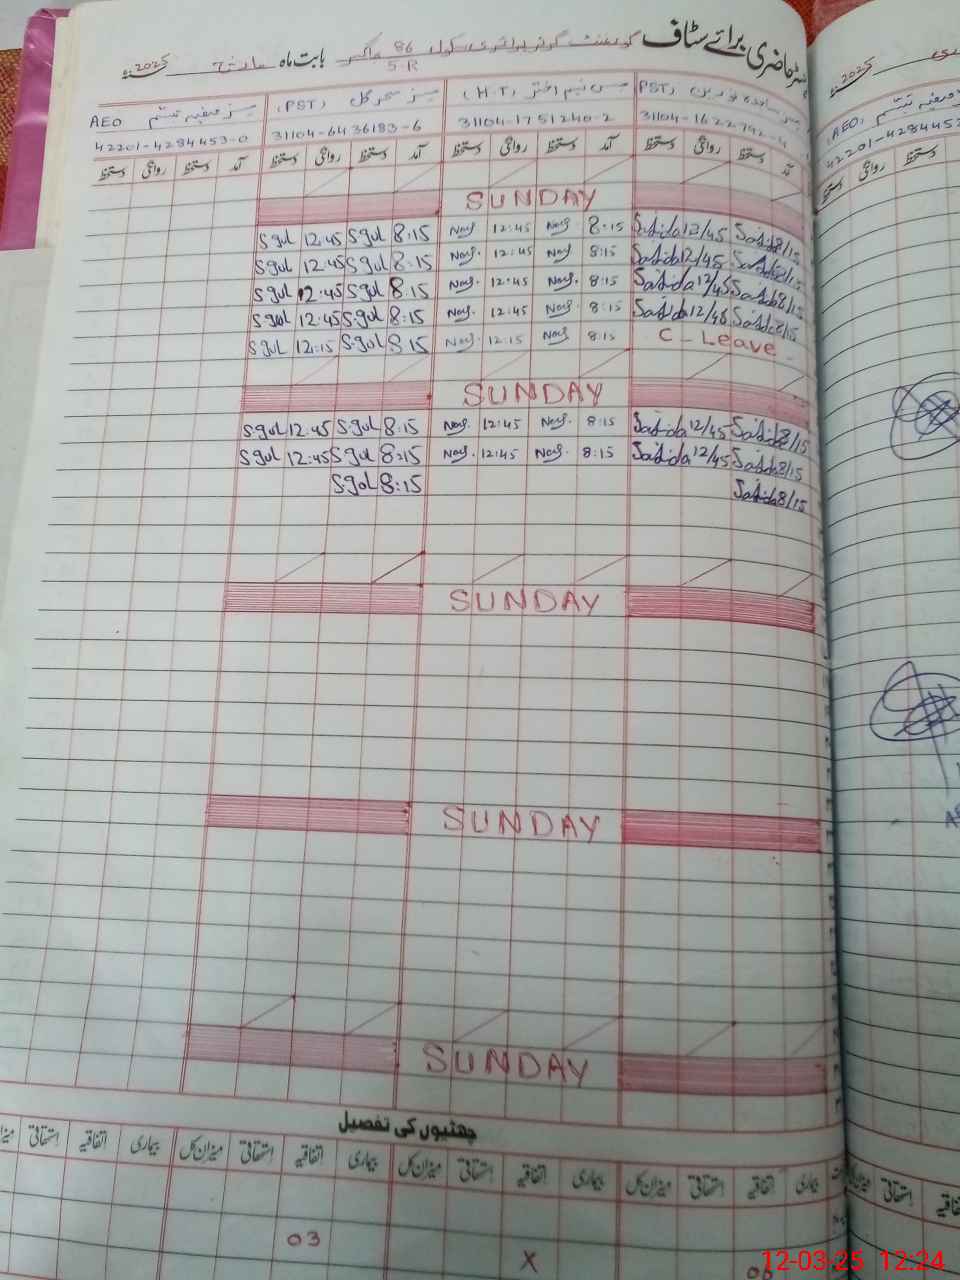 رجسٹر حاضری برائے سٹاف گورنمنٹ گرلز پرائمری سکول 86 بابت ماہ مارچ 2025ء
5-R
(PST) مس نسیم اختر (H.T) مسز سحر گل (PST) مسز صفیہ تبسم AEO
31104-1622792-4 31104-1751240-2 31104-6436183-6 42201-4284453-0
آمد دستخط روانگی دستخط آمد دستخط روانگی دستخط آمد دستخط روانگی دستخط آمد دستخط روانگی دستخط
SUNDAY
Sgul 12:45 Sgul 8:15 Nas. 12:45 Nas. 8:15 Sajida 12/45 Sajida 8/15
Sgul 12:45 Sgul 8:15 Nas. 12:45 Nas. 8:15 Sajida 12/45 Sajida 8/15
Sgul 12:45 Sgul 8:15 Nas. 12:45 Nas. 8:15 Sajida 12/45 Sajida 8/15
Sgul 12:45 Sgul 8:15 Nas. 12:45 Nas. 8:15 Sajida 12/45 Sajida 8/15
Sgul 12:15 Sgul 8:15 Nas. 12:15 Nas. 8:15 C - Leave
SUNDAY
Sgul 12:45 Sgul 8:15 Nas. 12:45 Nas. 8:15 Sajida 12/45 Sajida 8/15
Sgul 12:45 Sgul 8:15 Nas. 12:45 Nas. 8:15 Sajida 12/45 Sajida 8/15
Sgul 8:15 Sajida 8/15
SUNDAY
SUNDAY
SUNDAY
چھٹیوں کی تفصیل
بیماری اتفاقیہ استحقاقی میزان کل بیماری اتفاقیہ استحقاقی میزان کل بیماری اتفاقیہ استحقاقی میزان کل بیماری اتفاقیہ استحقاقی
03 X
2025ء
(AEO)
دستخط روانگی دستخط
استحقاقی اتفاقیہ
12-03-25 12:24